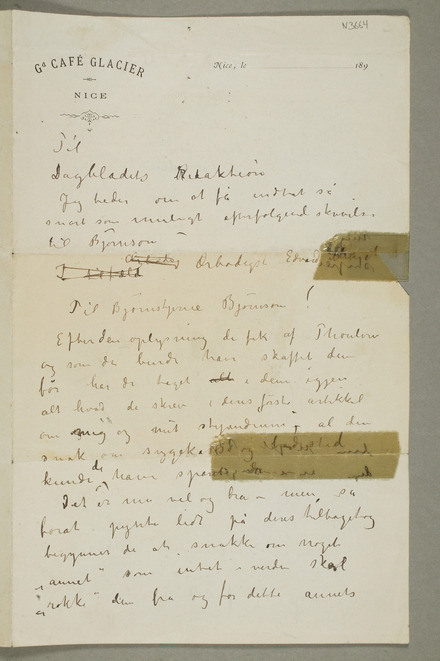 N3664
Gd CAFÉ GLACIER
NICE
Nice, le 189
Til
Dagbladets Redaktion
Jeg beder om at få indtat så
snart som muligt efterfølgend skrivels
til Bjørnson
Ærbødigst Edvard
Til Bjørnstjerne Bjørnson!
Efter den oplysning de fik af Thaulow
og som de burde have skaffet dem
før har de taget i dem igjen
alt hvad de skrev i deres første artikkel
om mig og mit stipendium; al den
snak om sygekasse og
kunde de have sparet
Det er nu vel og bra – men så
forat pynte lidt på deres tilbagetog
begynner de at snakke om noget
"annet" som intet i verden skal
"rokke" dem fra og for dette annets